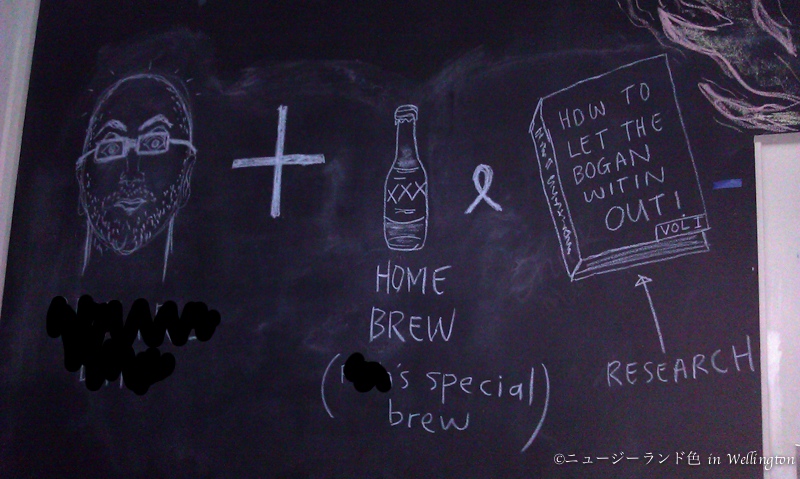 XXX
&
HOME
BREW
's special
brew
HOW TO
LET THE
BOGAN
WITIN
OUT!
VOL I
RESEARCH
©ニュージーランド色 in Wellington